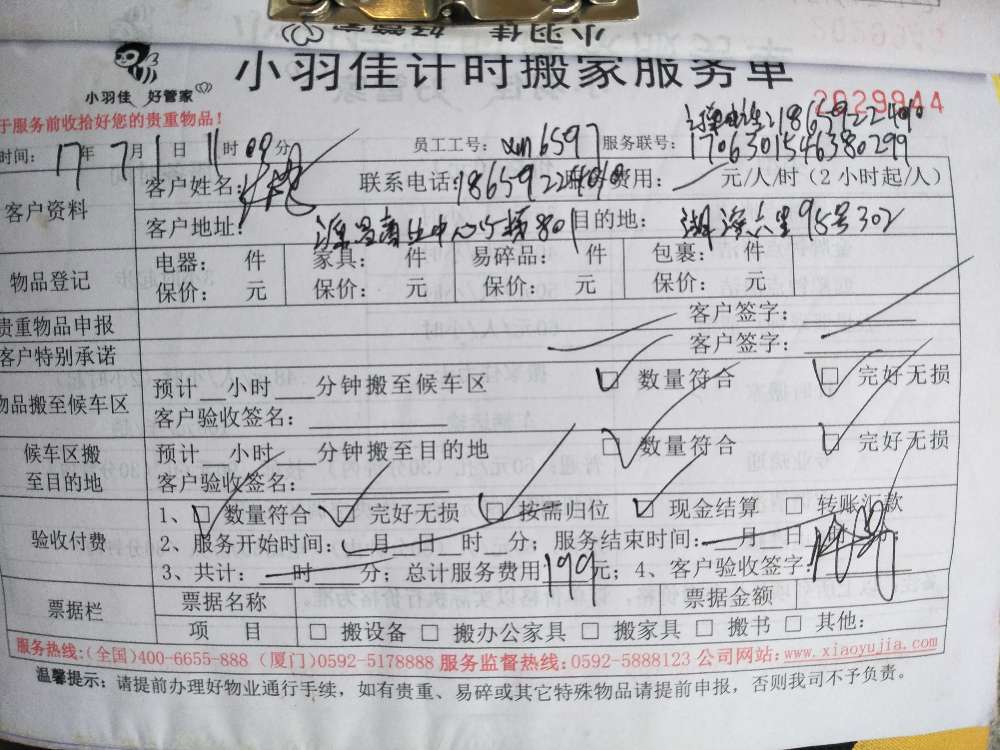 小羽佳 好管家
小羽佳计时搬家服务单
2029944
于服务前收拾好您的贵重物品！
时间：17年7月1日11时09分 员工工号：xm6597 服务联号：1706301546380299
客户资料 客户姓名： 联系电话：18659224040 费用： 元/人/时（2小时起/人）
客户地址： 801 目的地： 95号302
物品登记 电器： 件 家具： 件 易碎品： 件 包裹： 件
保价： 元 保价： 元 保价： 元 保价： 元
贵重物品申报 客户签字：
客户特别承诺 客户签字：
物品搬至候车区 预计 小时 分钟搬至候车区 ☑ 数量符合 ☑ 完好无损
客户验收签名：
候车区搬至目的地 预计 小时 分钟搬至目的地 ☑ 数量符合 ☑ 完好无损
客户验收签名：
验收付费 1、☑ 数量符合 ☑ 完好无损 ☑ 按需归位 ☑ 现金结算 □ 转账汇款
2、服务开始时间： 月 日 时 分；服务结束时间： 月 日 时 分；
3、共计： 时 分；总计服务费用199元；4、客户验收签字：
票据栏 票据名称 票据金额
项 目 □ 搬设备 □ 搬办公家具 □ 搬家具 □ 搬书 □ 其他：
服务热线：(全国)400-6655-888 (厦门)0592-5178888 服务监督热线：0592-5888123 公司网站：www.xiaoyujia.com
温馨提示：请提前办理好物业通行手续，如有贵重、易碎或其它特殊物品请提前申报，否则我司不予负责。